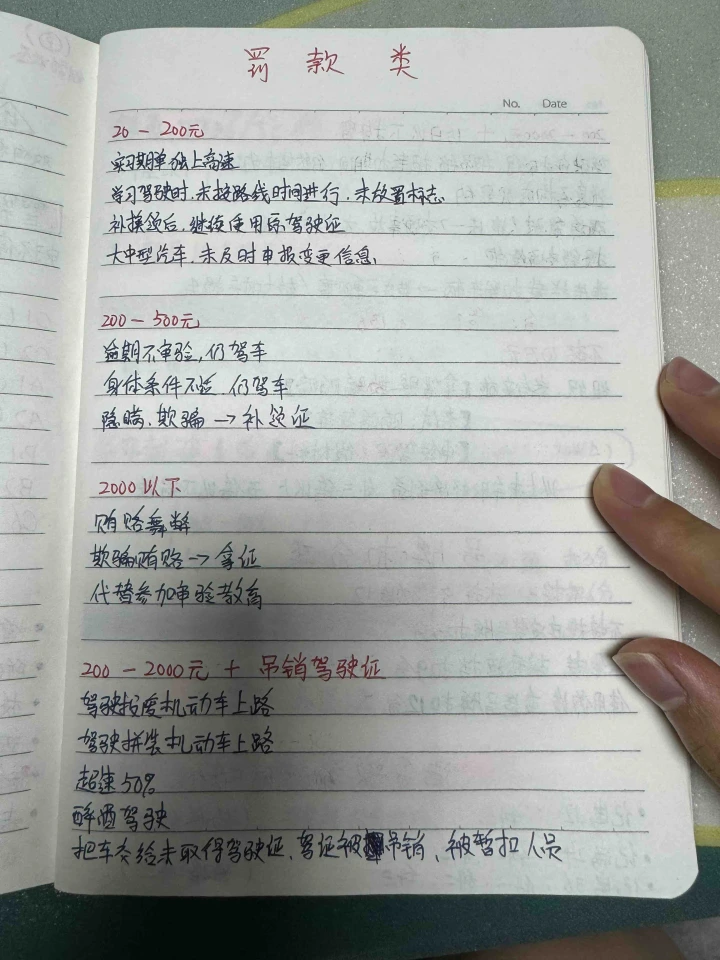 罚 款 类
No. Date
20 - 200元
实习期单独上高速
学习驾驶时,未按路线时间进行,未放置标志
补换领后,继续使用原驾驶证
大中型汽车,未及时申报变更信息
200 - 500元
逾期不审验,仍驾车
身体条件不适,仍驾车
隐瞒、欺骗 → 补领证
2000以下
贿赂舞弊
欺骗贿赂 → 拿证
代替参加审验教育
200 - 2000元 + 吊销驾驶证
驾驶报废机动车上路
驾驶拼装机动车上路
超速50%
醉酒驾驶
把车交给未取得驾驶证、驾证被吊销、被暂扣人员